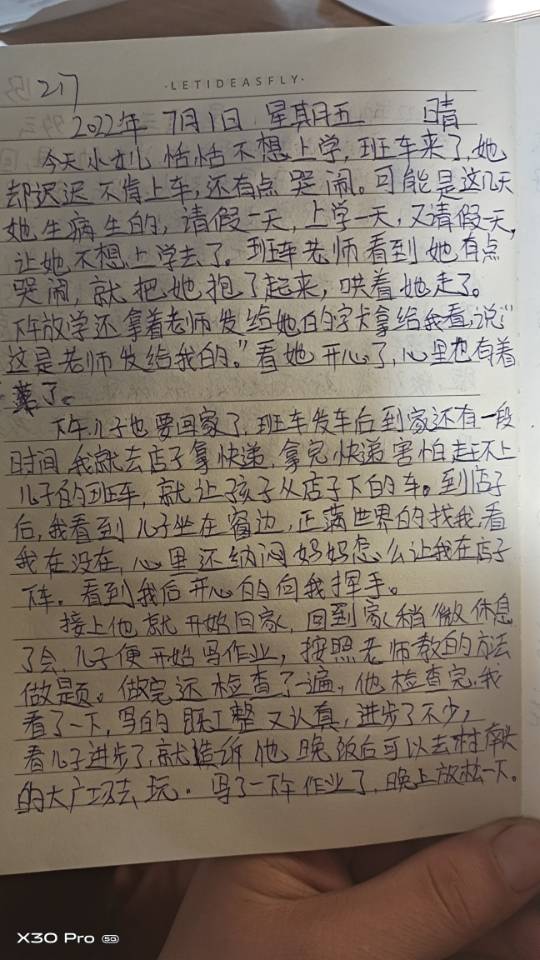 217
·LETIDEASFLY·
2022年 7月1日 星期五 晴
今天小女儿恬恬不想上学,班车来了,她
却迟迟不肯上车,还有点哭闹。可能是这几天
她生病生的,请假一天,上学一天,又请假一天,
让她不想上学去了。班车老师看到她有点
哭闹,就把她抱了起来,哄着她走了。
下午放学还拿着老师发给她的字卡拿给我看,说“
这是老师发给我的。”看她开心了,心里也有着
落了。
下午儿子也要回家了,班车发车后到家还有一段
时间,我就去店子拿快递,拿完快递害怕赶不上
儿子的班车,就让孩子从店子下的车。到店子
后,我看到儿子坐在窗边,正满世界的找我,看
我在没在,心里还纳闷妈妈怎么让我在店子
下车。看到我后开心的向我挥手。
接上他就开始回家,回到家稍微休息
了会,儿子便开始写作业,按照老师教的方法
做题。做完还检查了一遍。他检查完,我
看了一下,写的既工整又认真,进步了不少,
看儿子进步了,就告诉他晚饭后可以去村南头
的大广场去玩。写了一下午作业了,晚上放松一下。
X30 Pro 5G